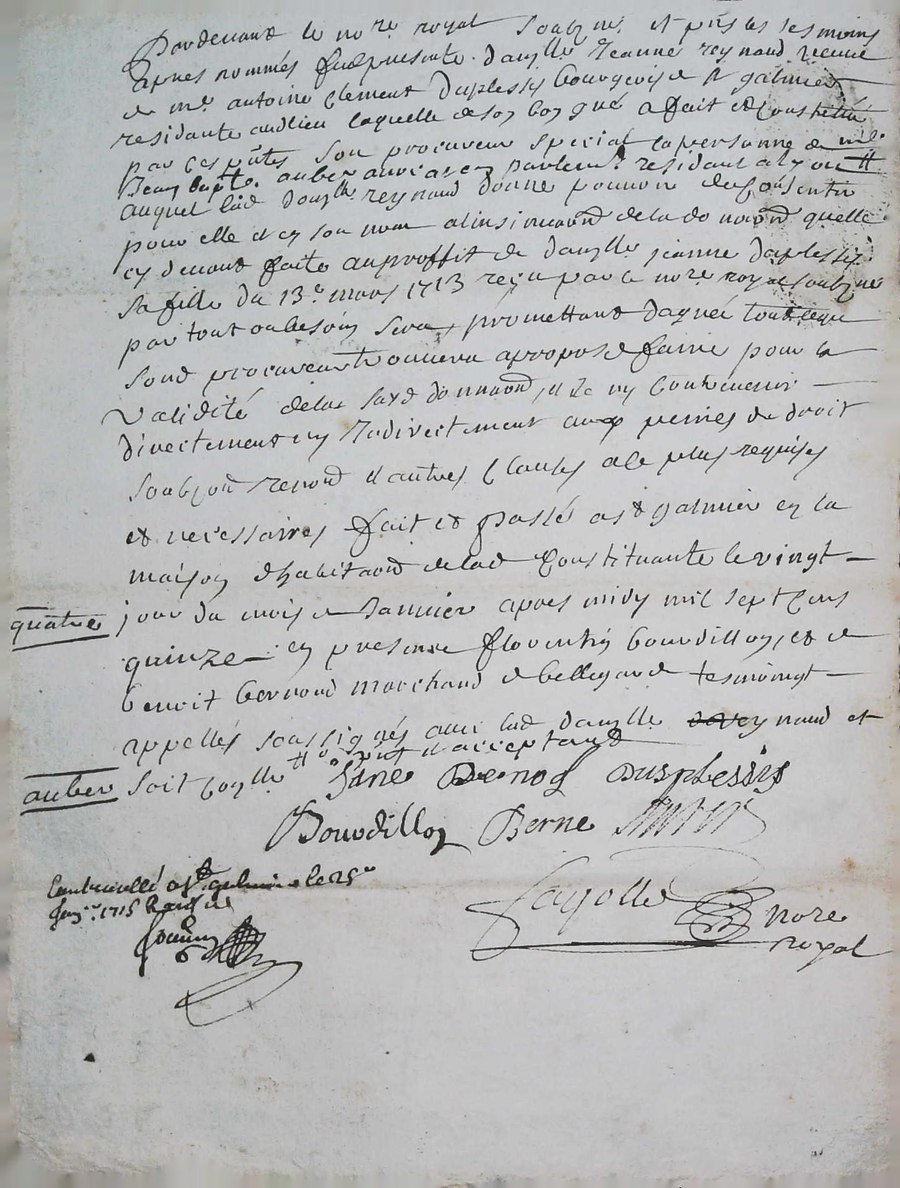 Pardevant le nore royal soubzne et pnts les tesmoins
apres nommés fut presente dauzlle Jeanne reynaud vefve
de mre antoine Clement Duplessis bourgeois de st galmier
residante aud lieu laquelle de son bon gré a fait et constitué
par ces pntes son procureur special la personne de mre
Jean bapte. auber avocat en parlemt. residant a lyon #
auquel lad. douzlle reynaud donne pouvoir de consentir
pour elle et en son nom a linsinuaon de la donaon quelle
cy devant faite au proffit de dauzlle jeanne duplessis
sa fille du 13e. mars 1713 reçu par le nore. royal soubzne
par tout ou besoin sera, promettant dagréé tout ce que
sond procureur trouvera a propos de faire pour la
validité de la susd donnaon, et de ny contrevenir
directement ny Indirectement aux peines de droit
soubz on renon et autres clauses a ce plus requises
et necessaires fait et passé a st galmier en la
maison dhabitaon de lad Constituante le vingt
quatre jour du mois de Janvier apres midy mil sept cens
quinze en presence florentin bourdillon, et de
benoit bernoud marchand de bellegarde tesmoingt
appellés soussignés avec lad dauzlle reynaud et
auber soit conlle # pnt et acceptant
Jane Renod Dusplessis
Bourdillon Berne
Controullé a st. galmier le 25e
Janer. 1715 Reçu
Fayolle nore
royal